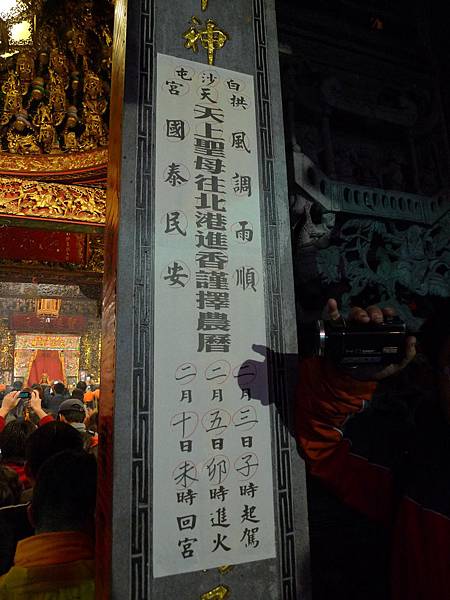 神
白沙屯
拱天宮
風調雨順
天上聖母往北港進香謹擇農曆
國泰民安
二月三日子時起駕
二月五日卯時進火
二月十日未時回宮